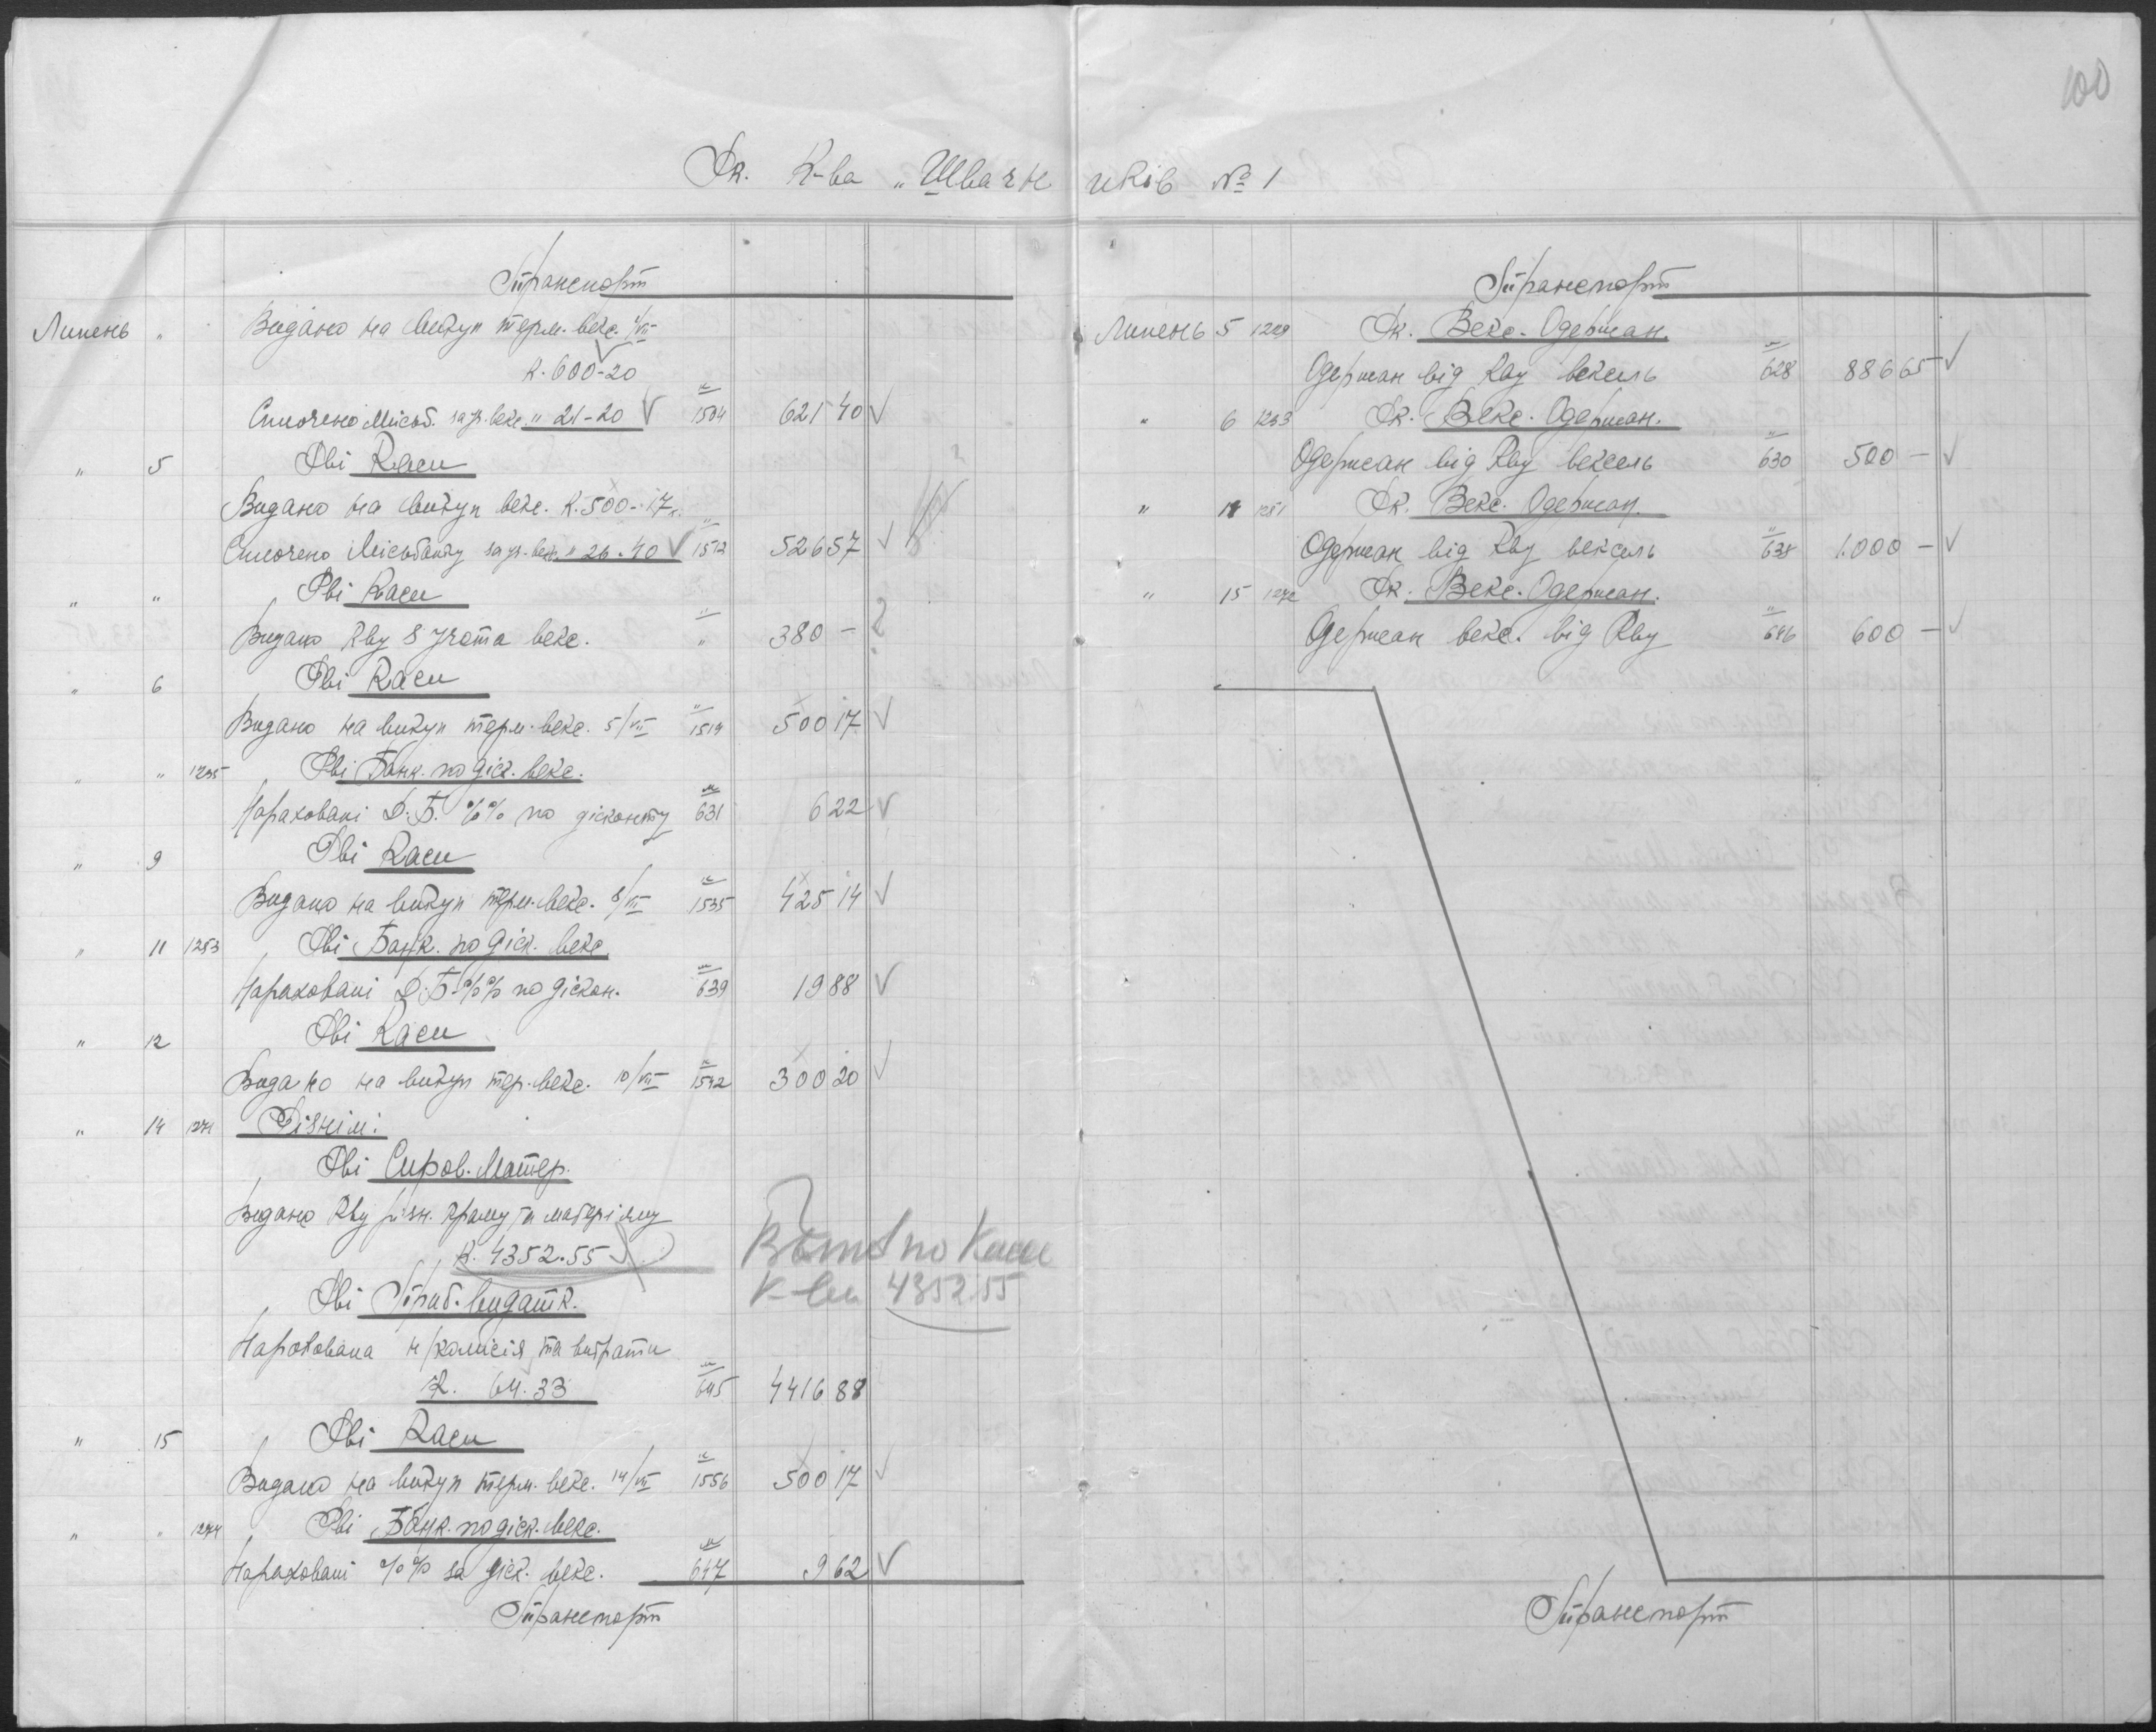 100
Рк. К-ва „Швачн иків № 1
Транспорт
Липень " Видано на викуп терм. векс. 1/VII
К. 600-20
Сплочено Міськб. за уч. векс. " 21-20 1504 621 40
" 5 Рві Каси
Видано на викуп векс. К. 500-17
Сплочено Міськбанку за уч. векс. " 26.40 1512 526 57
" " Рві Каси
Видано Кву з учота векс. " 380 - ?
" 6 Рві Каси
Видано на викуп терм. векс. 5/VII 1519 500 17
" " 1235 Рві Банк. по діск. векс.
Нараховані Д.Б. %% по дісконту 631 6 22
" 9 Рві Каси
Видано на викуп терм. векс. 8/VII 1535 425 14
" 11 1253 Рві Банк. по діск. векс.
Нараховані Д.Б. %% по діскон. 639 19 88
" 12 Рві Каси
Видано на викуп тер. векс. 10/VII 1542 300 20
" 14 1271 Різнім:
Рві Сиров. Матер.
Видано Кву різн. краму та матеріялу
К. 4352.55
по Касі
К-ви 4352.55
Рві Приб. видатк.
Нарахована н/комісія та витрати
К. 64.33 645 4416 88
" 15 Рві Каси
Видано на викуп терм. векс. 14/VII 1556 500 17
" " 1274 Рві Банк. по діск. векс.
Нараховані %% за діск. векс. 647 9 62
Транспорт
Транспорт
Липень 5 1229 Рк. Векс. Одержан.
Одержан від Кву вексель 628 886 65
" 6 1233 Рк. Векс. Одержан.
Одержан від Кву вексель 630 500 -
" 11 1251 Рк. Векс. Одержан.
Одержан від Кву вексель 638 1.000 -
" 15 1272 Рк. Векс. Одержан.
Одержан векс. від Кву 646 600 -
Транспорт